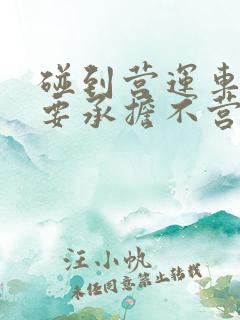 碰到营运车
要承担不营
汪小帆
未经同意禁止转载